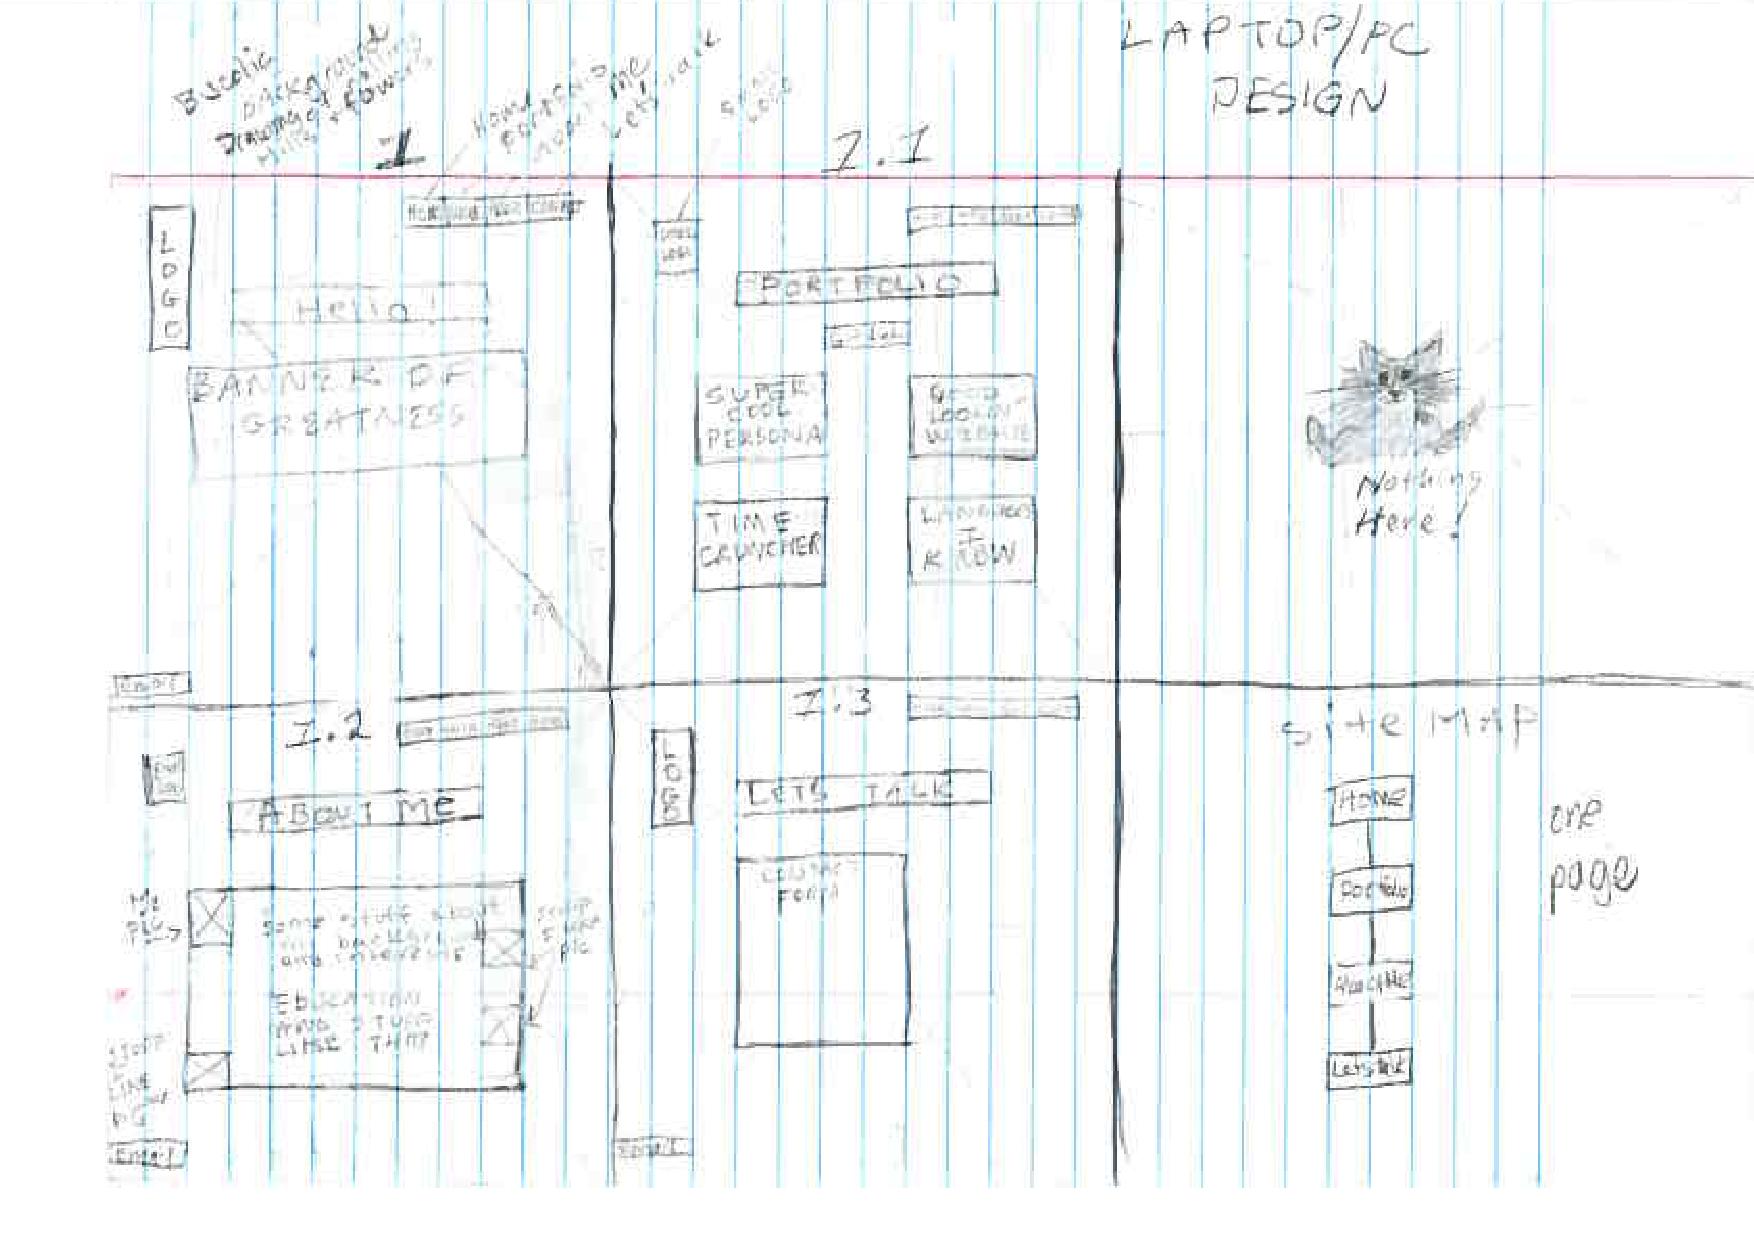 LAPTOP/PC
DESIGN
Bucolic
background
Drawing of rolling
Hills + flowers
Home
Portfolio
About Me
Lets talk
SMALL
LOGO
1
LOGO
Hello!
BANNER OF
GREATNESS
1.1
PORTFOLIO
SUPER
COOL
PERSONA
GOOD
LOOKIN'
WEBSITE
TIME
CRUNCHER
I
KNOW
Nothing
Here!
1.2
ABOUT ME
Me
PIC
Some stuff about
my background
and interests
EDUCATION
AND STUFF
LIKE THAT
PIC
STUFF
I
LIKE
PIC
Email
1.3
LOGO
LETS TALK
CONTACT
FORM
EMAIL
Site MAP
HOME
Portfolio
About Me
Lets talk
one
page